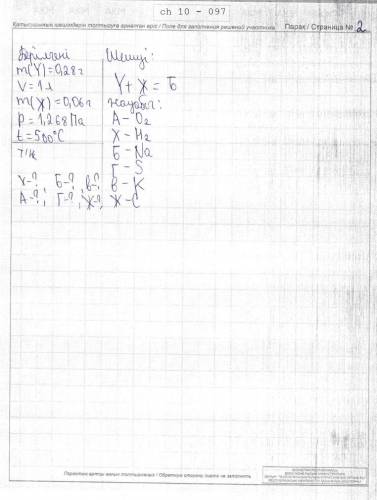 ch 10 - 097
Қатысушының шешімдерін толтыруға арналған өріс / Поле для заполнения решений участника
Парақ / Страница № 2
Берілгені
m(Y)=0,28г
V=1л
m(Ж)=0,06г
P=1,268Па
t=500°C
Т/к
X-?, Б-?, В-?
А-?, Г-?, Ж-?
Шешуі:
Y+Ж=Б
Жауабы:
А-O2
X-H2
Б-Na
Г-S
В-K
Ж-C
Парақтың артқы жағын толтырмаңыз / Обратную сторону листа не заполнять